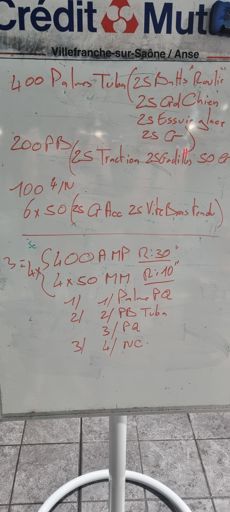 Crédit Mut
Villefranche-sur-Saône / Anse
400 Palmes Tuba (25 Batts Roulis
25 Gd Chien
25 Essuie glace
25 G)
200 PB
(25 Traction 25 Godille 50
100 4/N
6 x 50 (25 G Acc 25 Vite Bras Fond)
3 = 4x
400 AMP R: 30"
4 x 50 MM R: 10"
1/ 1/ Palme PQ
2/ 2/ PB Tuba
3/ PQ
3/ 4/ NC.